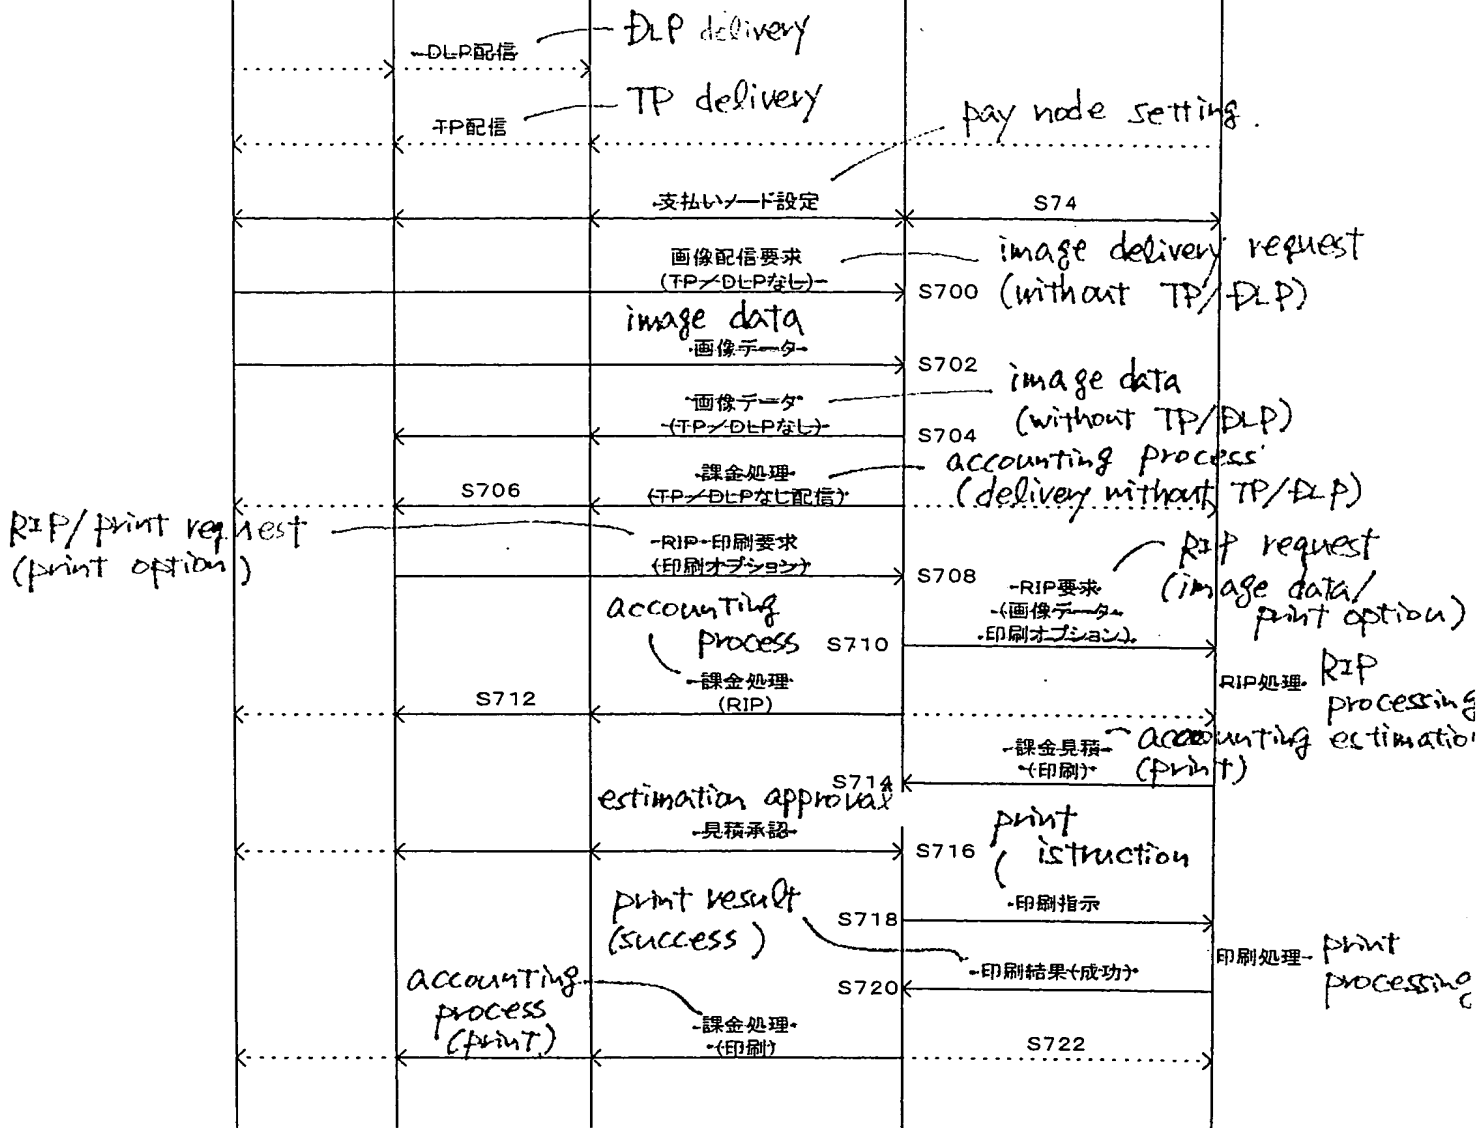 DLP配信
DLP delivery
TP配信
TP delivery
pay node setting.
支払いノード設定
S74
画像配信要求
(TP/DLPなし)
S700
image delivery request
(without TP/DLP)
image data
画像データ
S702
画像データ
(TP/DLPなし)
S704
image data
(without TP/DLP)
S706
課金処理
(TP/DLPなし配信)
accounting process
(delivery without TP/DLP)
RIP/print request
(print option)
RIP・印刷要求
(印刷オプション)
S708
RIP要求
(画像データ
印刷オプション)
RIP request
(image data/
print option)
accounting
process
S710
課金処理
(RIP)
S712
RIP処理
RIP
processing
課金見積
(印刷)
S714
accounting estimation
(print)
estimation approval
見積承認
S716
print
istruction
印刷指示
S718
print result
(success)
印刷処理
print
processing
印刷結果(成功)
S720
accounting
process
(print)
課金処理
(印刷)
S722